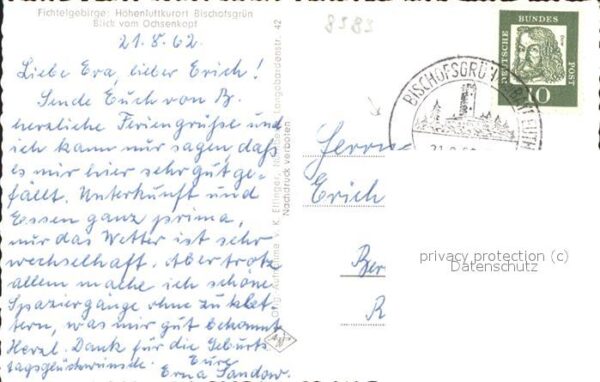 Fichtelgebirge: Höhenluftkurort Bischofsgrün
Blick vom Ochsenkopf
21.8.62.
Liebe Eva, lieber Erich!
Sende Euch von B.
herzliche Feriengrüße und
ich kann nur sagen daß
es mir hier sehr gut ge-
fällt. Unterkunft und
Essen ganz prima,
nur das Wetter ist sehr
wechselhaft. Aber trotz
allem mache ich schöne
Spaziergänge ohne zu klet-
tern, was mir gut bekommt
Herzl. Dank für die Geburts-
tagsglückwünsche. Eure
Erna Sandow.
Orig.-Aufnahme v. K. Ettinger, Langobardenstr. 42
Nachdruck verboten
Agfa
8583
DEUTSCHE BUNDES POST
10
BISCHOFSGRÜN
Herrn
Erich
Ber
R
privacy protection (c)
Datenschutz